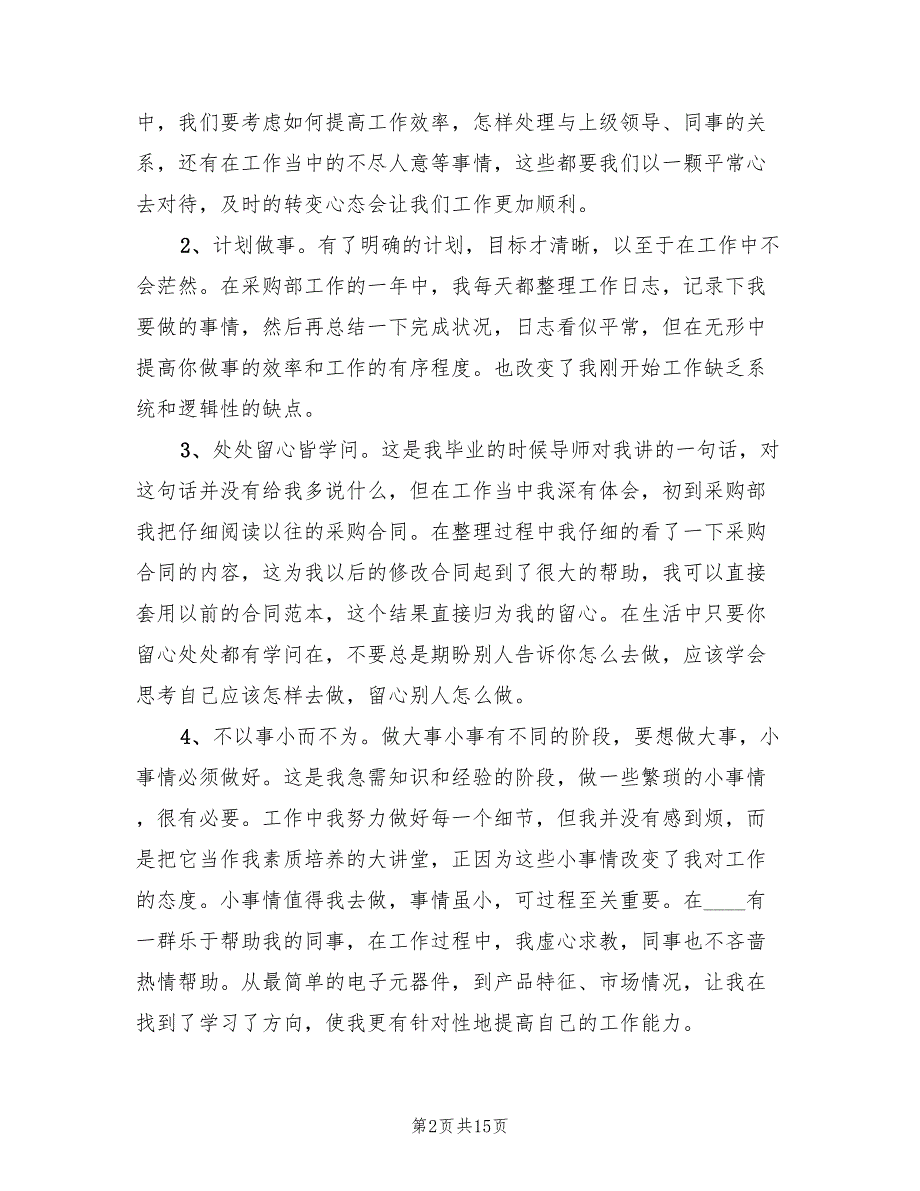 中，我们要考虑如何提高工作效率，怎样处理与上级领导、同事的关
系，还有在工作当中的不尽人意等事情，这些都要我们以一颗平常心
去对待，及时的转变心态会让我们工作更加顺利。
2、计划做事。有了明确的计划，目标才清晰，以至于在工作中不
会茫然。在采购部工作的一年中，我每天都整理工作日志，记录下我
要做的事情，然后再总结一下完成状况，日志看似平常，但在无形中
提高你做事的效率和工作的有序程度。也改变了我刚开始工作缺乏系
统和逻辑性的缺点。
3、处处留心皆学问。这是我毕业的时候导师对我讲的一句话，对
这句话并没有给我多说什么，但在工作当中我深有体会，初到采购部
我把仔细阅读以往的采购合同。在整理过程中我仔细的看了一下采购
合同的内容，这为我以后的修改合同起到了很大的帮助，我可以直接
套用以前的合同范本，这个结果直接归为我的留心。在生活中只要你
留心处处都有学问在，不要总是期盼别人告诉你怎么去做，应该学会
思考自己应该怎样去做，留心别人怎么做。
4、不以事小而不为。做大事小事有不同的阶段，要想做大事，小
事情必须做好。这是我急需知识和经验的阶段，做一些繁琐的小事情
，很有必要。工作中我努力做好每一个细节，但我并没有感到烦，而
是把它当作我素质培养的大讲堂，正因为这些小事情改变了我对工作
的态度。小事情值得我去做，事情虽小，可过程至关重要。在____有
一群乐于帮助我的同事，在工作过程中，我虚心求教，同事也不吝啬
热情帮助。从最简单的电子元器件，到产品特征、市场情况，让我在
找到了学习了方向，使我更有针对性地提高自己的工作能力。
第2页共15页